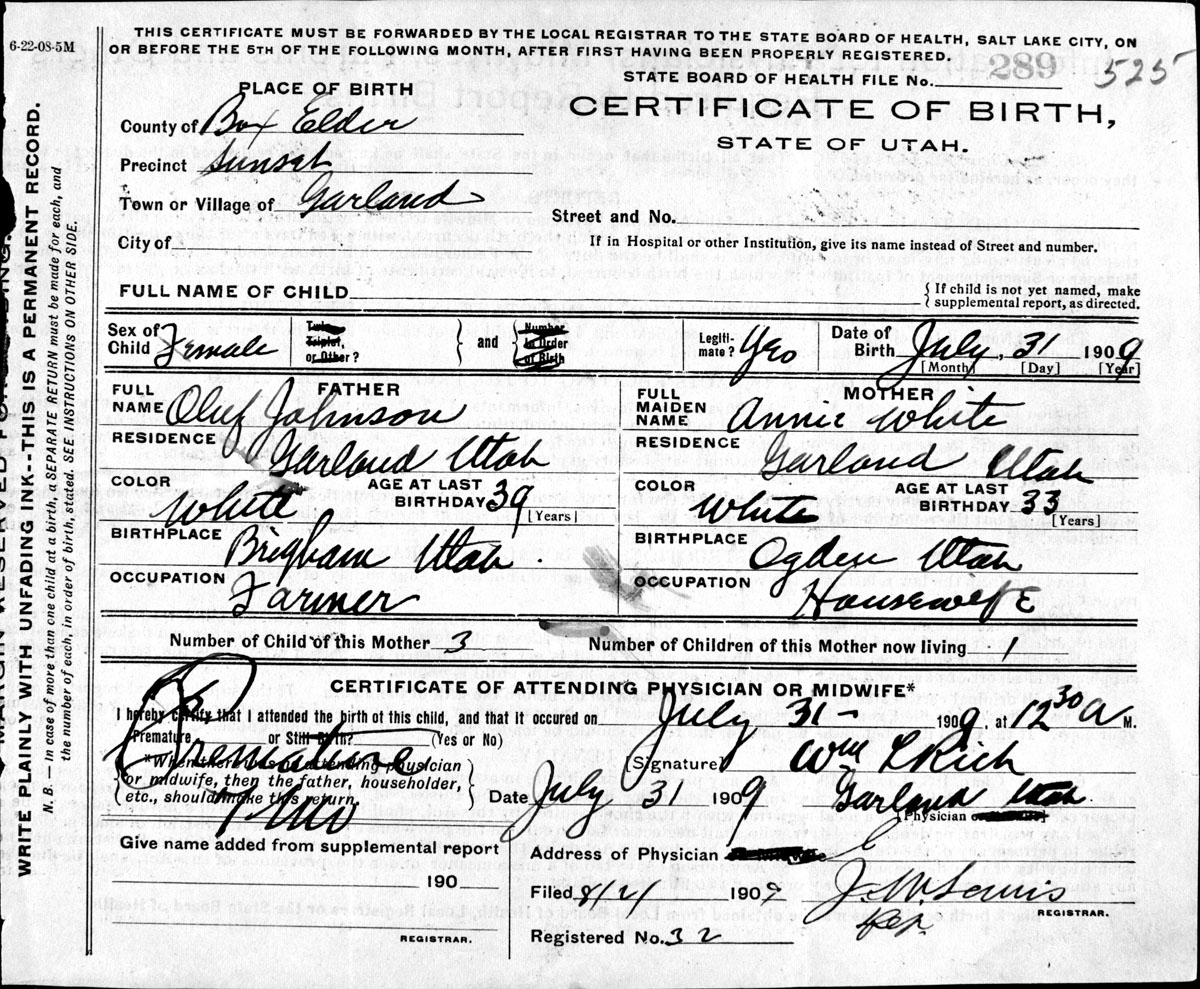 6-22-08-5M
THIS CERTIFICATE MUST BE FORWARDED BY THE LOCAL REGISTRAR TO THE STATE BOARD OF HEALTH, SALT LAKE CITY, ON
OR BEFORE THE 5TH OF THE FOLLOWING MONTH, AFTER FIRST HAVING BEEN PROPERLY REGISTERED.
STATE BOARD OF HEALTH FILE No. 289 525
PLACE OF BIRTH
CERTIFICATE OF BIRTH,
STATE OF UTAH.
County of Box Elder
Precinct Sunset
Town or Village of Garland
Street and No.
City of
If in Hospital or other Institution, give its name instead of Street and number.
FULL NAME OF CHILD
{ If child is not yet named, make
supplemental report, as directed.
Sex of Child Female
Twin, Triplet, or Other?
} and {
Number in Order of Birth
Legiti-mate? Yes
Date of Birth July, 31 1909
[Month] [Day] [Year]
FATHER
FULL NAME Oluf Johnson
MOTHER
FULL MAIDEN NAME Annie White
RESIDENCE Garland Utah
RESIDENCE Garland Utah
COLOR White AGE AT LAST BIRTHDAY 39 [Years]
COLOR White AGE AT LAST BIRTHDAY 33 [Years]
BIRTHPLACE Brigham Utah.
BIRTHPLACE Ogden Utah
OCCUPATION Farmer
OCCUPATION Housewife
Number of Child of this Mother 3
Number of Children of this Mother now living 1
CERTIFICATE OF ATTENDING PHYSICIAN OR MIDWIFE*
I hereby certify that I attended the birth of this child, and that it occured on July 31- 1909, at 12 30 A M.
Premature or Still Birth? (Yes or No)
Premature
7 mo
*When there was no attending physician
or midwife, then the father, householder,
etc., should make this return.
[Signature] Wm L Rich
Date July 31 1909 Garland Utah
[Physician
Give name added from supplemental report
190
REGISTRAR.
Address of Physician
Filed 8/2/ 1909 J. W. Lewis
REGISTRAR.
Dep.
Registered No. 32
WRITE PLAINLY WITH UNFADING INK--THIS IS A PERMANENT RECORD.
N. B. — In case of more than one child at a birth, SEPARATE RETURN must be made for each, and
the number of each, in order of birth, stated. SEE INSTRUCTIONS ON OTHER SIDE.